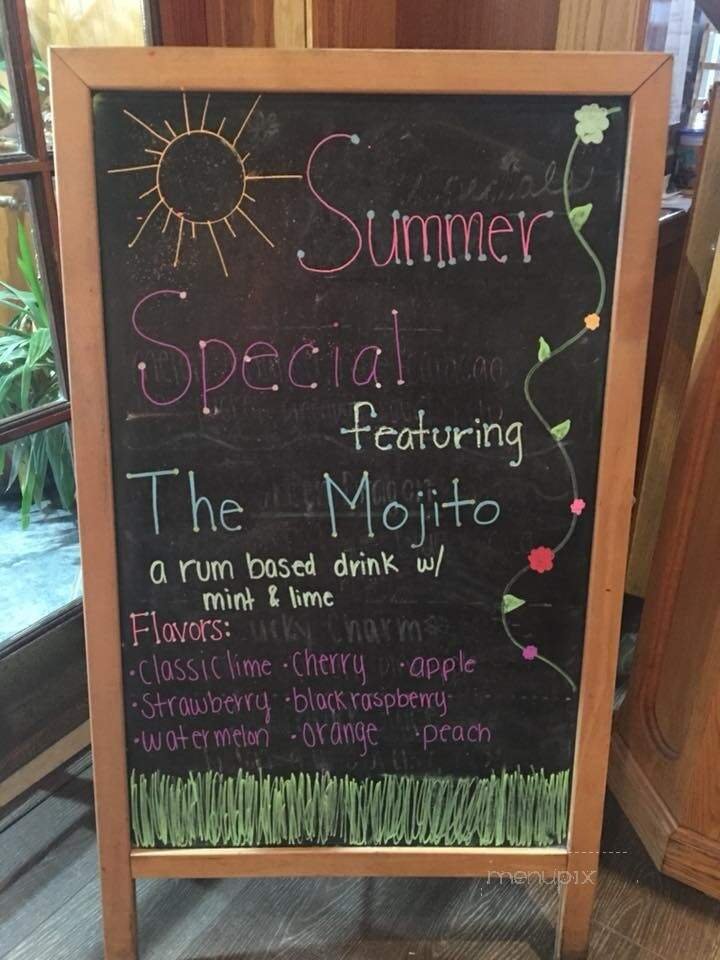 Summer
Special
featuring
The Mojito
a rum based drink w/
mint & lime
Flavors:
·classic lime ·Cherry ·apple
·Strawberry ·black raspberry
·watermelon ·orange ·peach
menupix